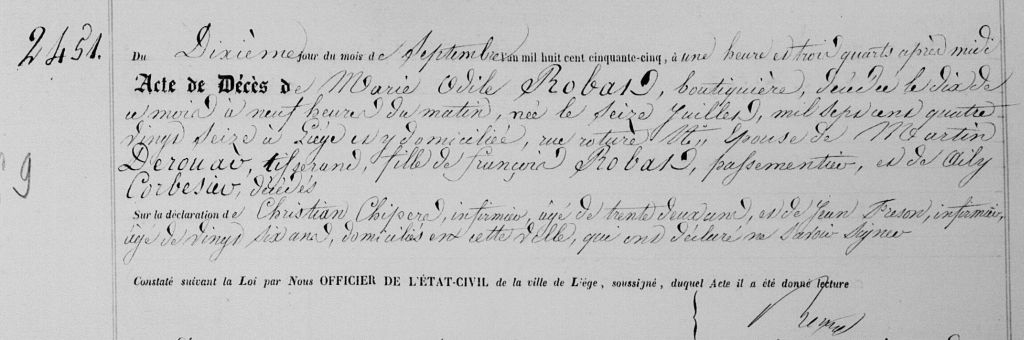 2451.
Du Dixième jour du mois de Septembre l'an mil huit cent cinquante-cinq, à une heure et trois quarts après midi
Acte de Décès de Marie Odile Robas, boutiquière, décédée le dix de
ce mois à neuf heures du matin, née le seize Juillet, mil sept cent quatre
vingt seize à Liége et y domiciliée, rue roture Epouse de Martin
Derouau, tisserand, fille de françois Robas, passementier, et de Aily
Corbesier, décédés
Sur la déclaration de Christian Chipers, infirmier, âgé de trente deux ans, et de Jean Frison, infirmier,
âgé de vingt six ans, domiciliés en cette ville, qui ont déclaré ne savoir signer
9
Constaté suivant la Loi par Nous OFFICIER DE L'ÉTAT-CIVIL de la ville de Liége, soussigné, duquel Acte il a été donné lecture